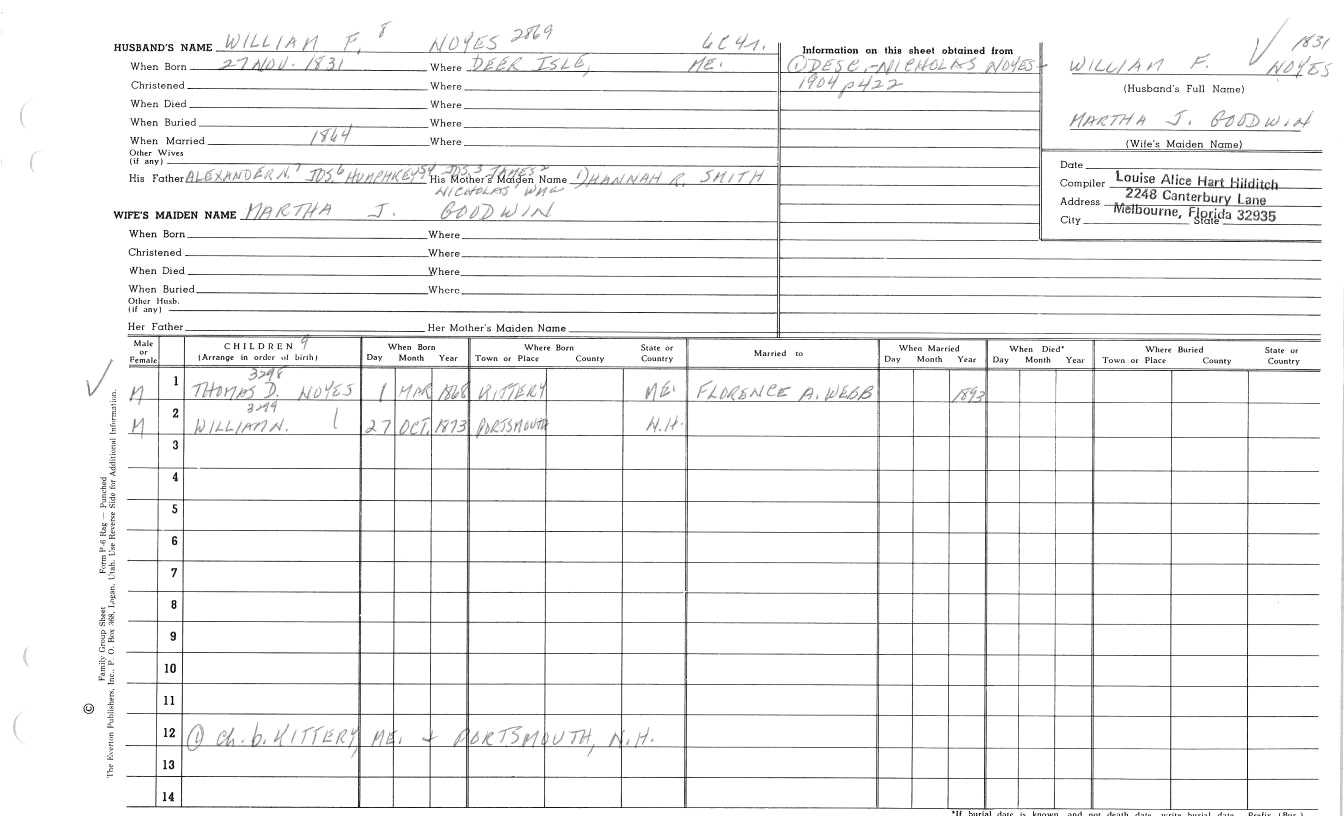 HUSBAND'S NAME WILLIAM F. 8 NOYES 2869
When Born 27 NOV. 1831 Where DEER ISLE, ME.
Christened Where
When Died Where
When Buried Where
When Married 1864 Where
Other Wives
(if any)
His Father ALEXANDER N.7 JOS6 HUMPHREY5,4 JOS.3 JAMES2 His Mother's Maiden Name HANNAH R. SMITH
NICHOLAS
WIFE'S MAIDEN NAME MARTHA J. GOODWIN
When Born Where
Christened Where
When Died Where
When Buried Where
Other Husb.
(if any)
Her Father Her Mother's Maiden Name
Information on this sheet obtained from
① DESC.-NICHOLAS NOYES-
1904 p422
1831
WILLIAM F. NOYES
(Husband's Full Name)
MARTHA J. GOODWIN
(Wife's Maiden Name)
Date
Compiler Louise Alice Hart Hilditch
Address 2248 Canterbury Lane
Melbourne, Florida 32935
City State
Male or Female
CHILDREN 9
(Arrange in order of birth)
When Born
Day Month Year
Where Born
Town or Place County
State or Country
Married to
When Married
Day Month Year
When Died*
Day Month Year
Where Buried
Town or Place County
State or Country
3298
M 1 THOMAS D. NOYES 1 MAR 1868 KITTERY ME. FLORENCE A. WEBB 1893
3299
M 2 WILLIAM N. 27 OCT. 1873 PORTSMOUTH N.H.
3
4
5
6
7
8
9
10
11
12 ① Ch. b. KITTERY, ME. + PORTSMOUTH, N.H.
13
14
© Family Group Sheet Form P-6 Rag — Punched
The Everton Publishers, Inc., P. O. Box 368, Logan, Utah. Use Reverse Side for Additional Information.
*If burial date is known, and not death date, write burial date. Prefix (Bur.)